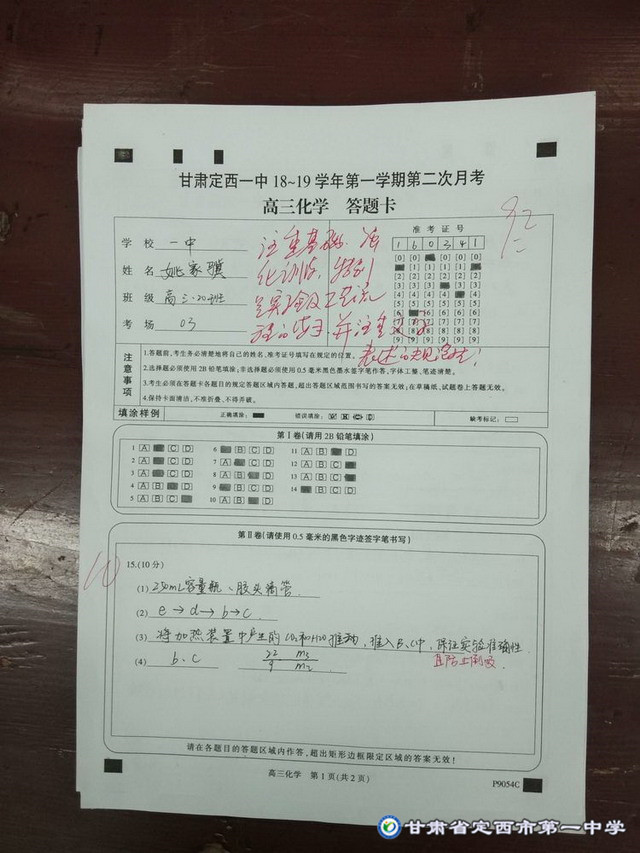 甘肃定西一中 18~19 学年第一学期第二次月考
高三化学 答题卡
92
学 校 一中
姓 名 姚家骥
班 级 高三.20班
考 场 03
注重基础.
准考证号
1 6 0 3 4 1
[0] [0] [0] [0] [0]
[1] [1] [1] [1]
[2] [2] [2] [2] [2] [2]
[3] [3] [3] [3] [3]
[4] [4] [4] [4] [4]
[5] [5] [5] [5] [5] [5]
[6] [6] [6] [6] [6]
[7] [7] [7] [7] [7] [7]
[8] [8] [8] [8] [8] [8]
[9] [9] [9] [9] [9] [9]
并注意
表述的规范性!
注意事项
1.答题前,考生务必清楚地将自己的姓名、准考证号填写在规定的位置。
2.选择题必须使用2B铅笔填涂,非选择题必须使用0.5毫米黑色墨水签字笔作答,字体工整、笔迹清楚。
3.考生必须在答题卡各题目的规定答题区域内答题,超出答题区域范围书写的答案无效;在草稿纸、试题卷上答题无效。
4.保持卡面清洁,不准折叠、不得弄破。
填涂样例 正确填涂: 错误填涂: 缺考标记:
第Ⅰ卷(请用2B铅笔填涂)
1 [A] [C] [D] 6 [B] [C] [D] 11 [A] [B] [D]
2 [A] [C] [D] 7 [A] [C] [D] 12 [A] [B] [C]
3 [A] [C] [D] 8 [A] [B] [D] 13 [A] [B] [C]
4 [A] [C] [D] 9 [B] [C] [D] 14 [B] [C] [D]
5 [A] [B] [C] 10 [A] [B] [D]
第Ⅱ卷(请使用0.5毫米的黑色字迹签字笔书写)
10
15.(10分)
(1) 250mL容量瓶、胶头滴管
(2) e→d→b→c
(3) 将加热装置中产生的CO2和H2O推动,准入B、C中,保证实验准确性
且防止倒吸.
(4) b、c 22 m3
9 m2
请在各题目的答题区域内作答,超出矩形边框限定区域的答案无效!
高三化学 第1页(共2页)
P9054C
甘肃省定西市第一中学